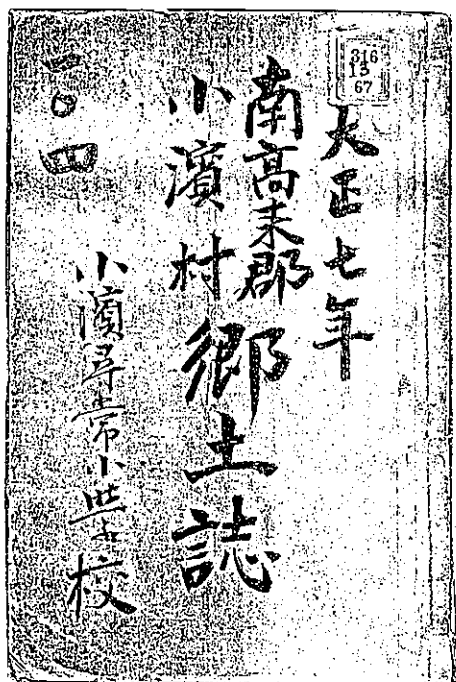 316
13
67
大正七年
南高来郡
小濱村
郷土誌
小濱尋常小学校
二〇四